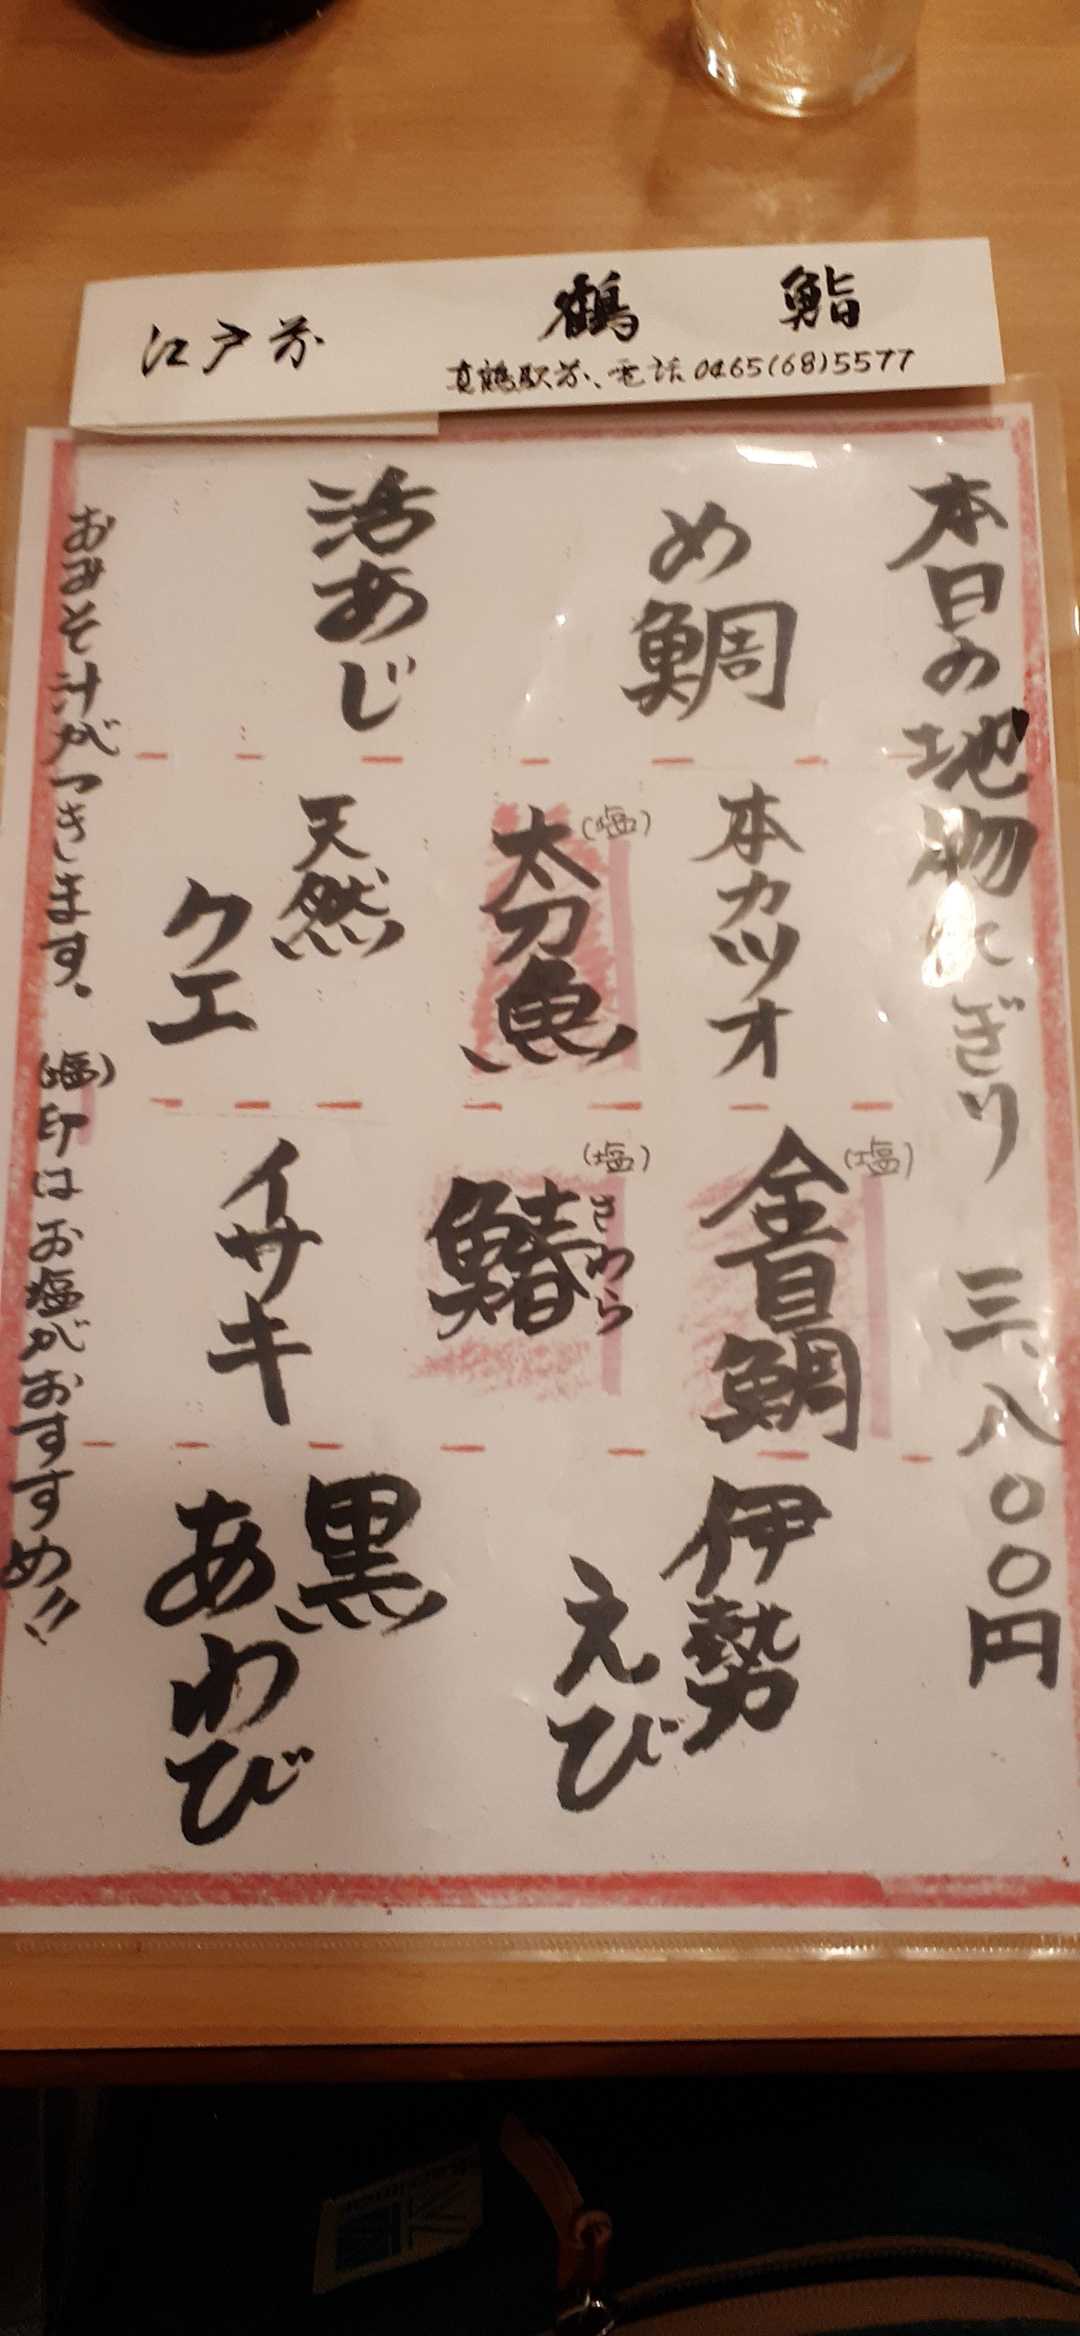 江戸前 鶴 鮨
真鶴駅前、電話0465(68)5577
本日の地物にぎり 三、八〇〇円
め鯛
活あじ
本カツオ
(塩)
太刀魚
天然
クエ
(塩)
金目鯛
(塩)
鰆
さわら
イサキ
伊勢
えび
黒
あわび
おみそ汁がつきます。(塩)印はお塩がおすすめ!!